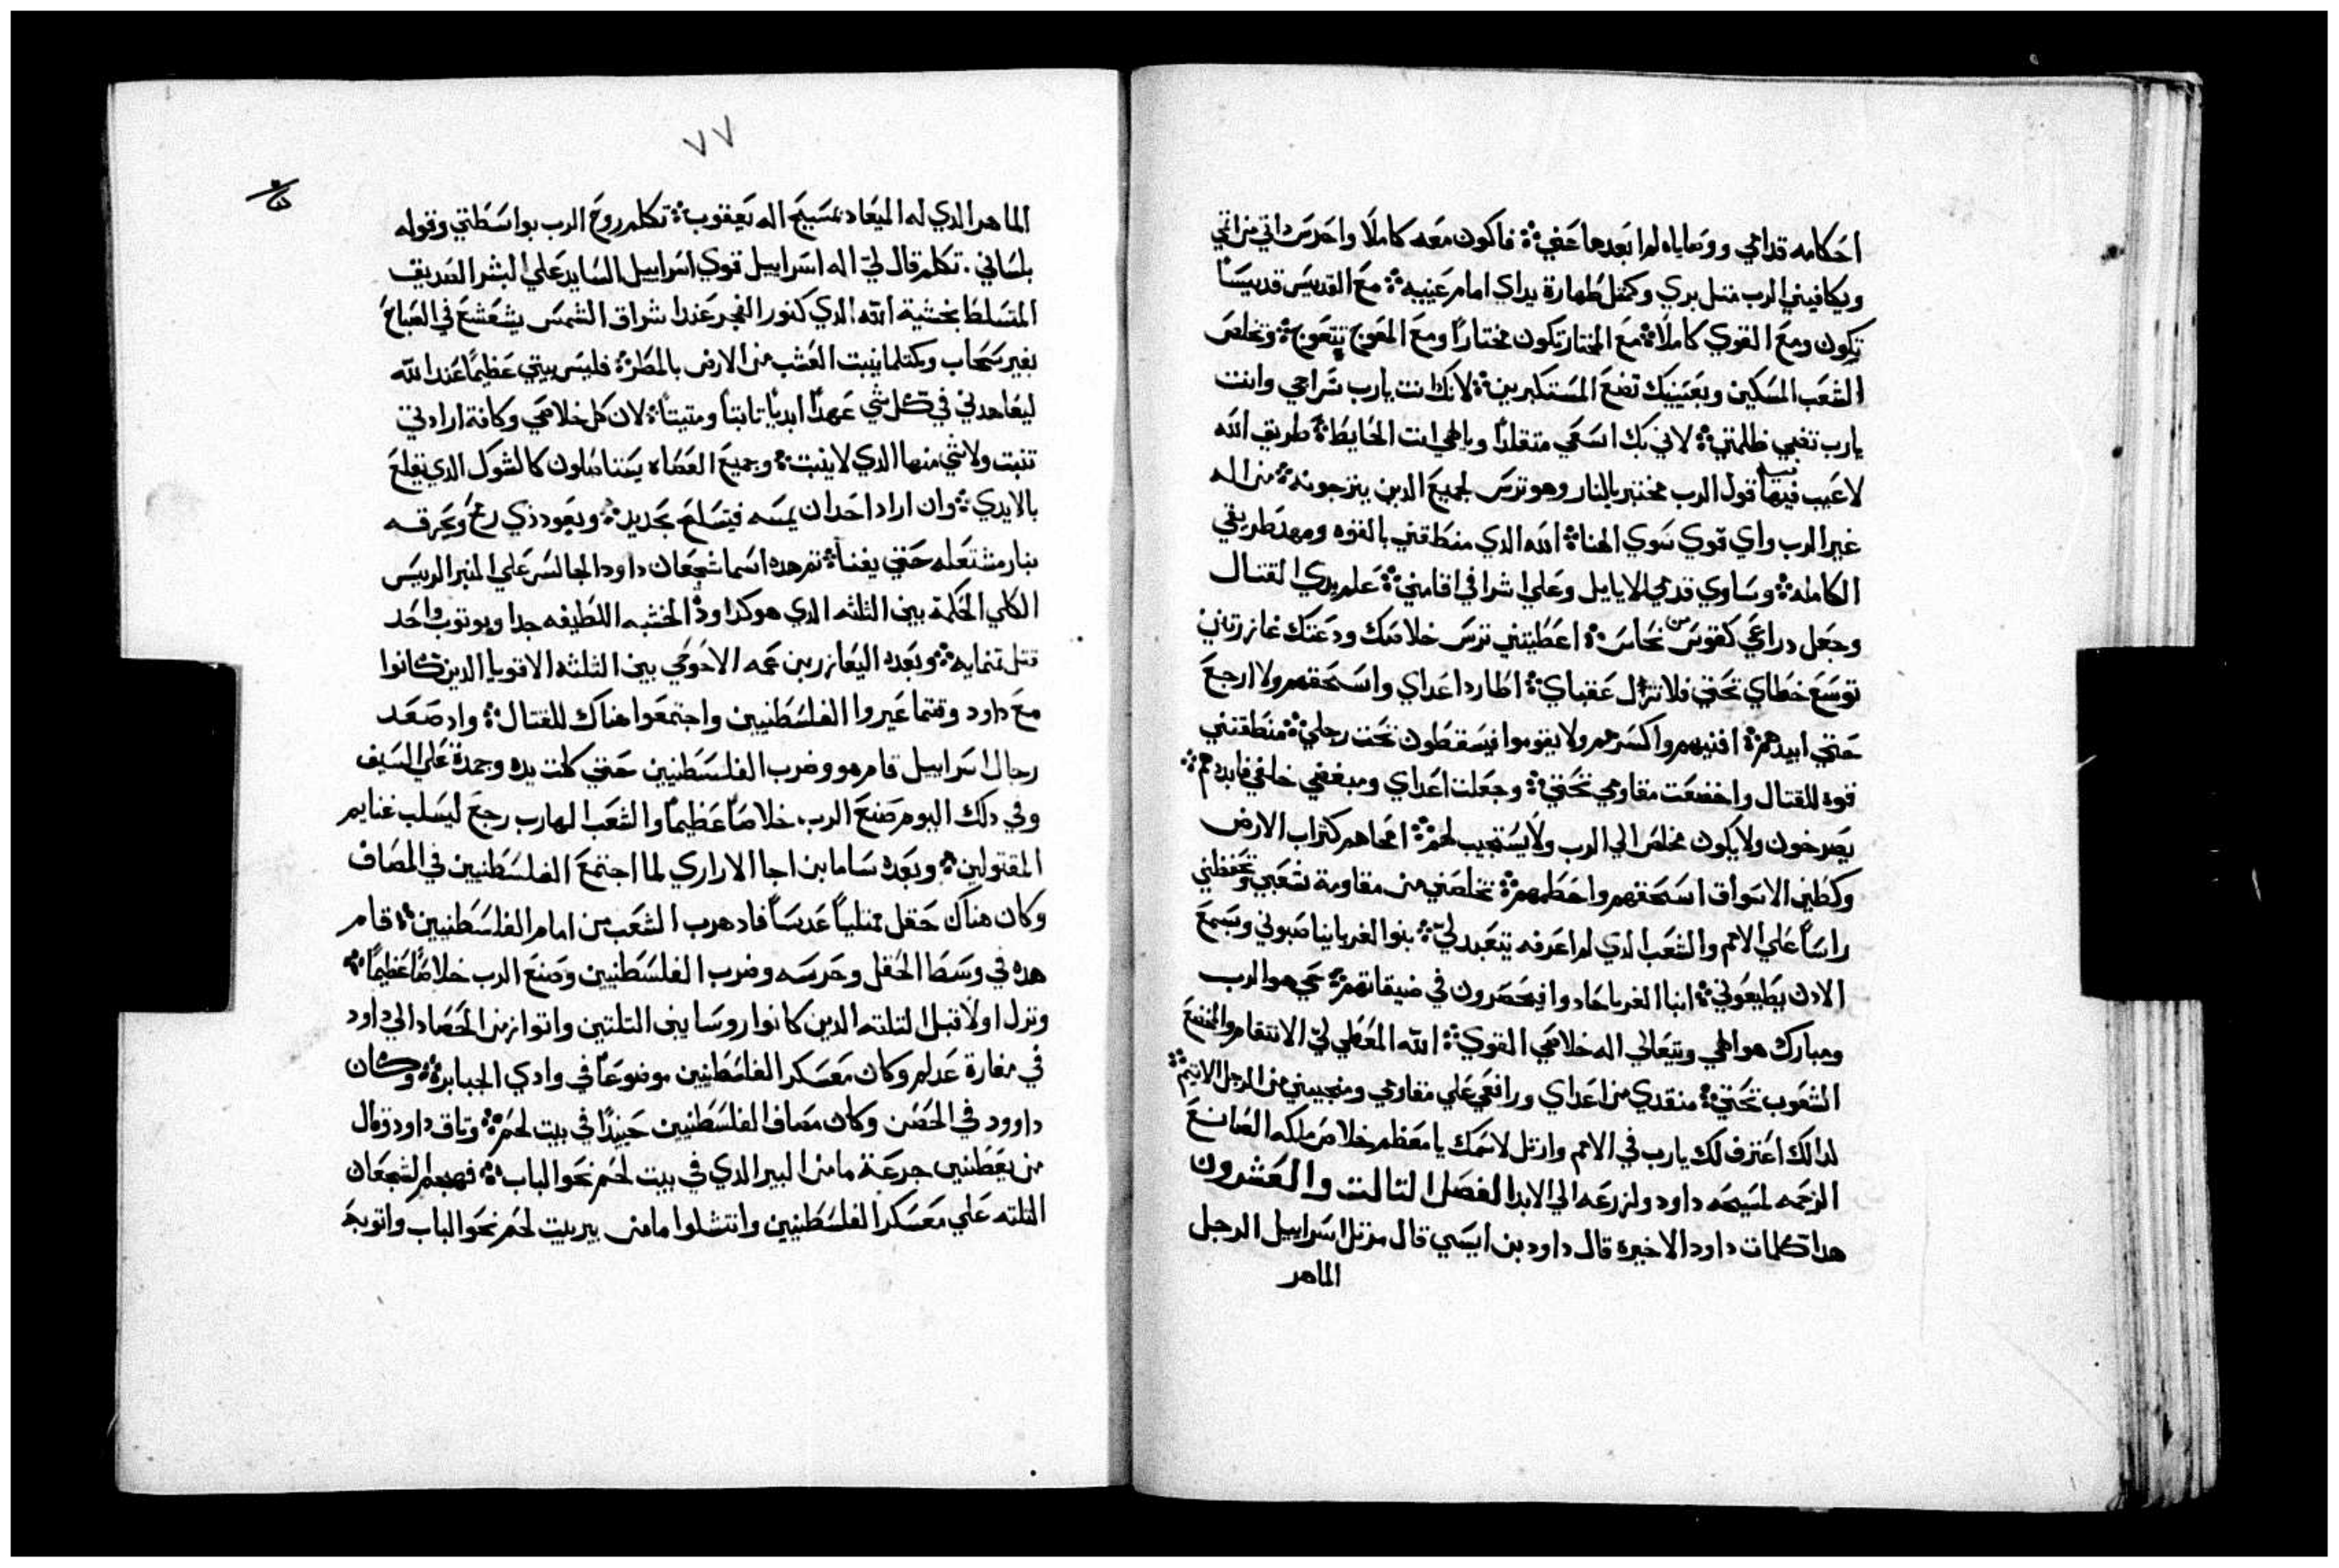 احكامه قدامي ووصاياه لم ابعدها عني ؞ فاكون معه كاملا واحرس داتي من اتمي
ويكافيني الرب متل بري وكمتل طهارة يداي امام عينيه ؞ مع القديس قديسًا
تكون ومع القوي كاملا ؞ مع المختار تكون مختارًا ومع المعوج تتعوج ؞ وتخلص
الشعب المسكين وبعينيك تضع المستكبرين ؞ لانك انت يارب سراجي وانت
يارب تضي ظلمتي ؞ لاني بك اسعي متقلدًا وبالهي اتب الحايط ؞ طريق الله
لا عيب فيها قول الرب مختبر بالنار وهو ترس لجميع الدين يترجونه ؞ من اله
غير الرب واي قوي سوي الهنا ؞ الله الدي منطقني بالقوه ومهد طريقي
الكامله ؞ وساوي قدمي للايايل وعلي اشرافي اقامني ؞ علم يدي القتال
وجعل دراعي كقوس من نحاس ؞ اعطيتني ترس خلاصك ودعتك
توسع خطاي تحتي فلا تزل عقباي ؞ اطارد اعداي واسحقهم ولا ارجع
حتي ابيدهم ؞ افنيهم واكسرهم ولا يقوموا فيسقطون تحت رجلي ؞ منطقتني
قوه للقتال واخضعت مقاومي تحتي ؞ وجعلت اعداي ومبغضي خلفي فابددهم ؞
يصرخون ولا يكون مخلص الي الرب ولا يستجيب لهم ؞ امحاهم كتراب الارض
وكطين الاسواق اسحقهم واحطمهم ؞ تخلصني من مقاومة شعبي وتحفظني
راسًا علي الامم والشعب الدي لم اعرفه يتعبد لي ؞ بنوا الغربا يناصبوني وبسمع
الادن يطيعوني ؞ ابنا الغربا حادوا فيحصرون في ضيقاتهم ؞ حي هو الرب
ومبارك هو الهي ويتعالي اله خلاصي القوي ؞ الله المعطي لي الانتقام والمخضع
الشعوب تحتي ؞ منقدي من اعداي ورافعي علي مقاومي ومنجييني من الرجل الاتيم ؞
لدالك اعترف لك يارب في الامم وارتل لاسمك يا معظم خلاص ملكه الصانع
الرحمه لمسيحه داود ولزرعه الي الابد الفصل التالت والعشرون
هدا كلمات داود الاخيره قال داود بن ايسي قال مرتل اسراييل الرجل
الماهر
٧٧
الماهر الدي له الميعاد بمسيح اله يعقوب ؞ تكلم روح الرب بواسطتي وقوله
بلساني . تكلم قال لي اله اسراييل قوي اسراييل السايد علي البشر الصديق
المتسلط بخشية الله الدي كنور الفجر عند اشراق الشمس يشعشع في الصباح
بغير سحاب وكمتلما ينبت العشب من الارض بالمطر ؞ فليس بيتي عظيمًا عند الله
ليعاهدني في كل شي عهدًا ابديًا تابتًا ومتبتًا ؞ لان كل خلاصي وكافة ارادتي
تنبت ولا شي منها الدي لا ينبت ؞ وجميع العصاه يستاصلون كالشوك الدي يقلع
بالايدي ؞ وان اراد احد ان يمسه فيتسلح بحديد ؞ وبعود دي رمح ويحرقه
بنار مشتعله حتي يفنا ؞ تم هده اسما شجعان داود الجالس علي المنبر الرييس
الكلي الحكمة بين التلته الدي هو كدا ودْ الخشبه اللطيفه جدا وبوتوب واحد
قتل تمنمايه ؞ وبعده اليعازر بن عمه الاحوحي بين التلته الاقويا الدين كانوا
مع داود وقتما عيروا الفلسطنيين واجتمعوا هناك للقتال ؞ واد صعد
رجال اسراييل قام هو وضرب الفلسطنيين حتي كلت يده وجمدة علي السيف
وفي دلك اليوم صنع الرب خلاصًا عظيمًا والشعب الهارب رجع ليسلب غنايم
المقتولين ؞ وبعده ساما بن اجا الاراري لما اجتمع الفلسطنيين في المصاف
وكان هناك حقل ممتليًا عدسًا فاد هرب الشعب من امام الفلسطنيين ؞ قام
هده في وسط الحقل وحرسه وضرب الفلسطنيين وصنع الرب خلاصًا عظيمًا ؞
ونزل اولا قبل التلته الدين كانوا روسا بين التلتين واتوا زمن الحصاد الي داود
في مغارة عدلم وكان معسكر الفلسطنيين موضوعًا في وادي الجبابرة ؞ وكان
داوود في الحصن وكان مصاف الفلسطنيين حينيدًا في بيت لحم ؞ وتاق داود وقال
من يعطيني جرعة ما من البير الدي في بيت لحم نحو الباب ؞ فهجم الشجعان
التلته علي معسكر الفلسطنيين وانتشلوا ما من بير بيت لحم نحو الباب واتو به